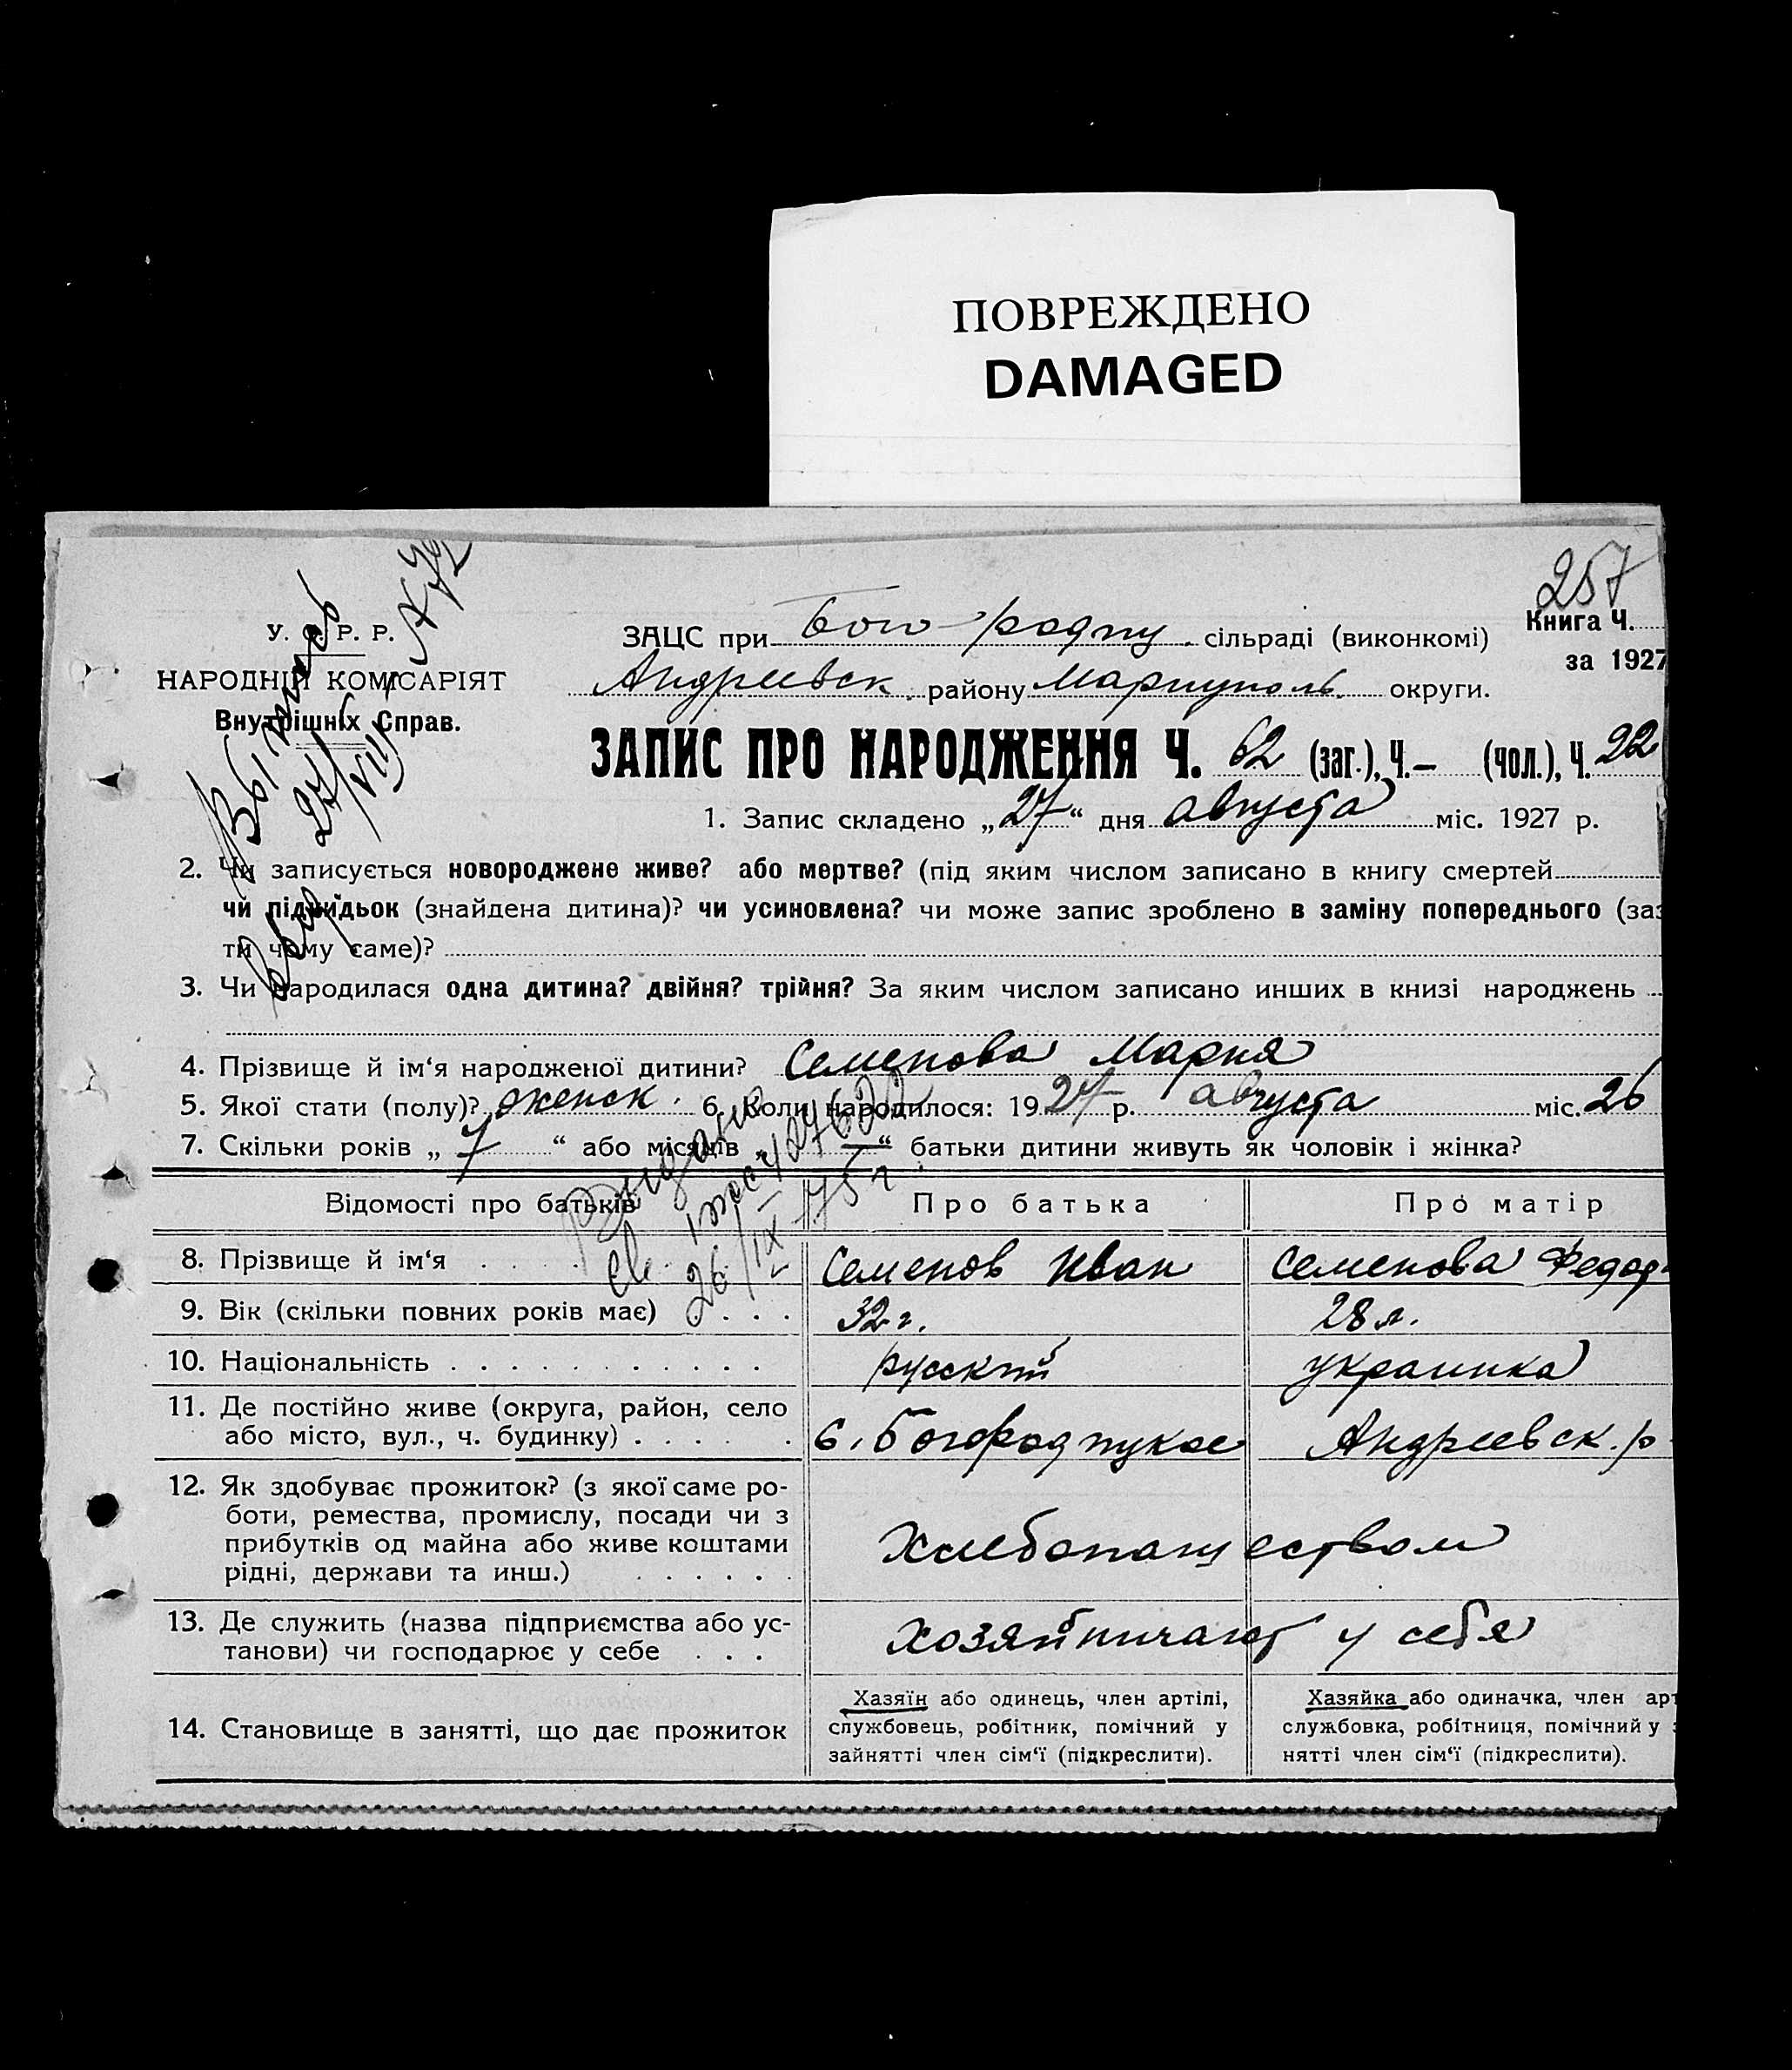 ПОВРЕЖДЕНО
DAMAGED
257
У. С. Р. Р.
НАРОДНІЙ КОМІСАРІЯТ
Внутрішніх Справ.
Книга Ч.
за 1927
ЗАЦС при Бого-родиц. сільраді (виконкомі)
Андреевск. району Мариуполь. округи.
ЗАПИС ПРО НАРОДЖЕННЯ Ч. 62 (заг.), Ч.— (чол.), Ч. 22
1. Запис складено „27“ дня августа міс. 1927 р.
2. Чи записується новороджене живе? або мертве? (під яким числом записано в книгу смертей
чи підкидьок (знайдена дитина)? чи усиновлена? чи може запис зроблено в заміну попереднього (заз
ти чому саме)?
3. Чи народилася одна дитина? двійня? трійня? За яким числом записано инших в книзі народжень
4. Прізвище й ім‘я народженої дитини? Семенова Мария
5. Якої стати (полу)? женск. 6. Коли народилося: 1927 р. августа міс. 26
7. Скільки років „7“ або місяців „—“ батьки дитини живуть як чоловік і жінка?
Выдано
26/IX 75 г
Відомості про батьків
Про батька
Про матір
8. Прізвище й ім‘я
Семенов Иван
Семенова Федор
9. Вік (скільки повних років має)
32 г.
28 л.
10. Національність
русский
украинка
11. Де постійно живе (округа, район, село
або місто, вул., ч. будинку)
с. Богородицкое Андреевск. р
12. Як здобуває прожиток? (з якої саме ро-
боти, ремества, промислу, посади чи з
прибутків од майна або живе коштами
рідні, держави та инш.)
Хлебопашеством
13. Де служить (назва підприємства або ус-
танови) чи господарює у себе
хозяйничают у себя
14. Становище в занятті, що дає прожиток
Хазяїн або одинець, член артілі,
службовець, робітник, помічний у
зайнятті член сім‘ї (підкреслити).
Хазяйка або одиначка, член арт
службовка, робітниця, помічний у з
нятті член сім‘ї (підкреслити).